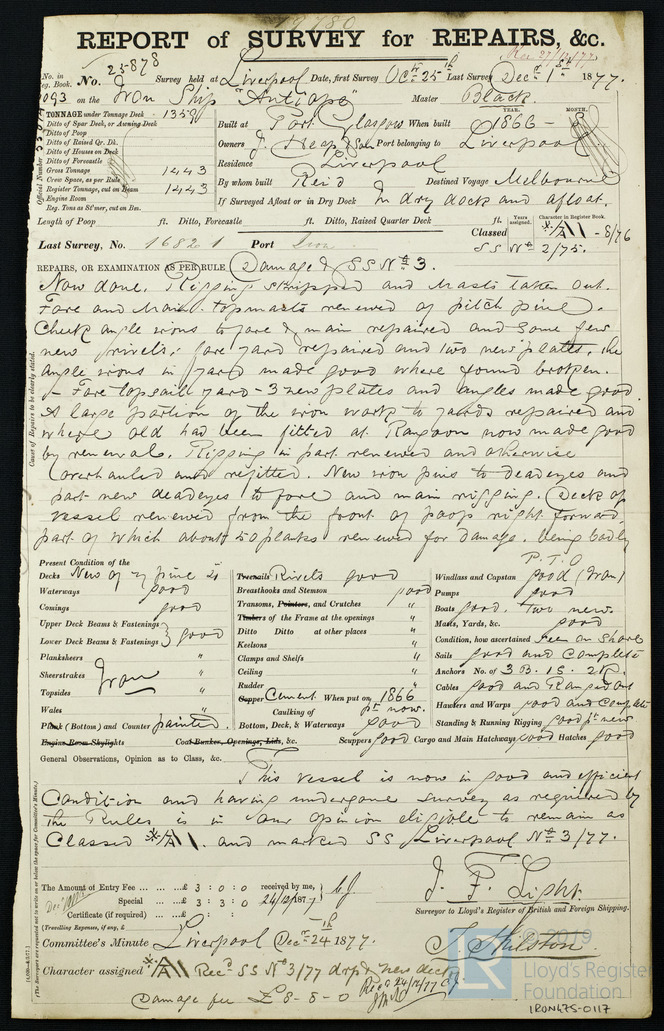 REPORT of SURVEY for REPAIRS, &c.
Rec 27/12/77
No. in Reg. Book. No. 25878 Survey held at Liverpool Date, first Survey Octr 25th Last Survey Decr 1st 1877.
1093 on the Iron Ship "Antiope" Master Black.
TONNAGE under Tonnage Deck - 1359
Ditto of Spar Deck, or Awning Deck
Ditto of Poop
Ditto of Raised Qr. Dk.
Ditto of Houses on Deck
Ditto of Forecastle
Gross Tonnage 1443
Crew Space, as per Rule
Register Tonnage, cut on Beam 1443
Engine Room
Reg. Tons as St'mer, cut on Bm.
Official Number
YEAR. MONTH.
Built at Port Glasgow When built 1866 -
Owners J. Heap & Son Port belonging to Liverpool
Residence Liverpool
By whom built Reid Destined Voyage Melbourne
If Surveyed Afloat or in Dry Dock In dry dock and afloat.
Length of Poop ft. Ditto, Forecastle ft. Ditto, Raised Quarter Deck ft.
Years assigned. Character in Register Book.
Last Survey, No. 16821 Port Iron Classed A1 - 8/76
SS No 2/75.
REPAIRS, OR EXAMINATION AS PER RULE Damage & SS No 3.
Now done. Rigging stripped and Masts taken out.
Fore and Main topmasts renewed of pitch pine.
Cheek angle irons to fore & main repaired and some few
new rivets: fore yard repaired and two new plates, the
angle irons in yard made good where found broken.
- Fore topsail yard - 3 new plates and angles made good.
A large portion of the iron work to yards repaired and
where old had been fitted at Rangoon now made good
by renewal. Rigging in part renewed and otherwise
overhauled and refitted. New iron pins to deadeyes and
part new deadeyes to fore and main rigging. Deck of
vessel renewed from the front of poop right forward,
part of which about 50 plates renewed for damage, being badly
P.T.O
Cause of Repairs to be clearly stated.
Present Condition of the
Decks New of y pine
Waterways good
Comings good
Upper Deck Beams & Fastenings
Lower Deck Beams & Fastenings } good
Planksheers "
Sheerstrakes Iron "
Topsides "
Wales "
Plank (Bottom) and Counter painted.
Engine Room Skylights Coal Bunker, Openings, Lids, &c.
Treenails Rivets good
Breasthooks and Stemson good
Transoms, Pointers, and Crutches "
Timbers of the Frame at the openings "
Ditto Ditto at other places "
Keelsons "
Clamps and Shelfs "
Ceiling "
Rudder "
Copper Cement When put on, 1866
Caulking of pt now.
Bottom, Deck, & Waterways good
Scuppers good Cargo and Main Hatchways good Hatches good
Windlass and Capstan good (Iron)
Pumps good
Boats good. Two new
Masts, Yards, &c. good
Condition, how ascertained Seen on Shore
Sails good and Complete
Anchors No. of 3 B. 1 S. 2 K.
Cables good and Ranged out
Hawsers and Warps good and complete
Standing & Running Rigging good pt new
General Observations, Opinion as to Class, &c.
This vessel is now in good and efficient
Condition and having undergone survey as required by
the Rules is in our opinion eligible to remain as
Classed A1. and marked SS Liverpool No 3/77.
The Amount of Entry Fee ... £ 3 : 0 : 0 received by me,
Special ... £ 3 : 3 : 0 24/12/1877
Certificate (if required) ... £
(Travelling Expenses, if any, £
J. F. Light.
Surveyor to Lloyd's Register of British and Foreign Shipping.
Committee's Minute Liverpool Decr 24th 1877.
J. Skilston
Character assigned A1 Recd SS No 3/77 drp & new deck
Damage fee £ 8 - 8 - 0 Recd 24/12/77
(The Surveyors are requested not to write on or below the space for Committee's Minute.)
© 2019
LR
Lloyd's Register
Foundation
IRON475-0117